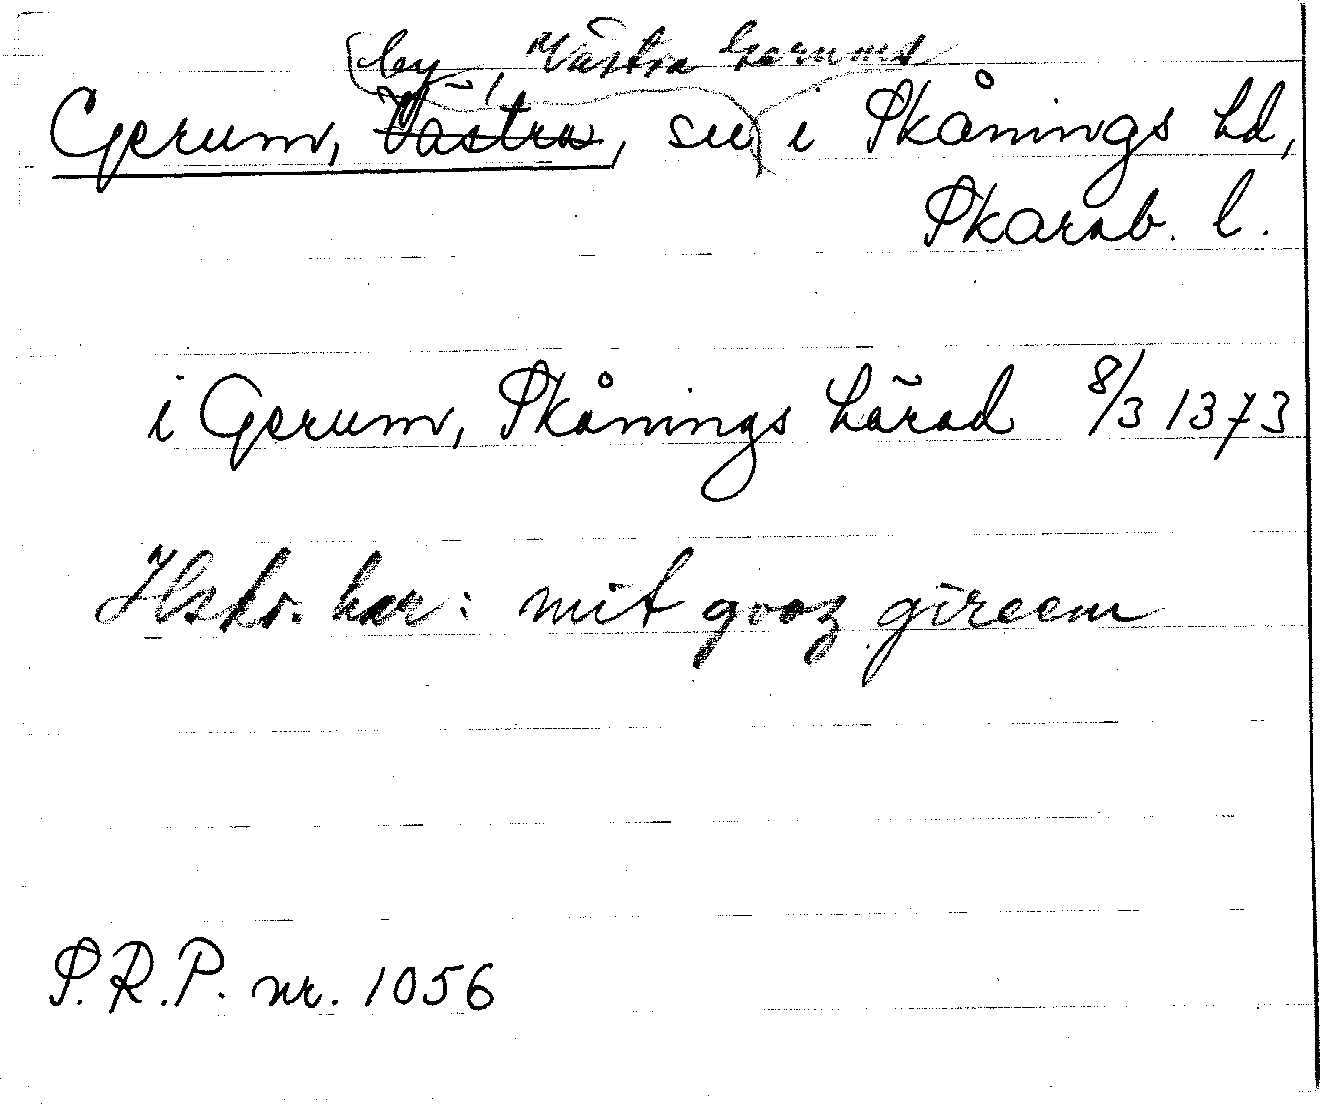 by i Västra Gerums
Gerum, Västra, sn i Skånings hd,
Skarab. l.
i Gerum, Skånings härad 8/3 1373
Hskr. har: mit gooz gireem
S.R.P. nr. 1056